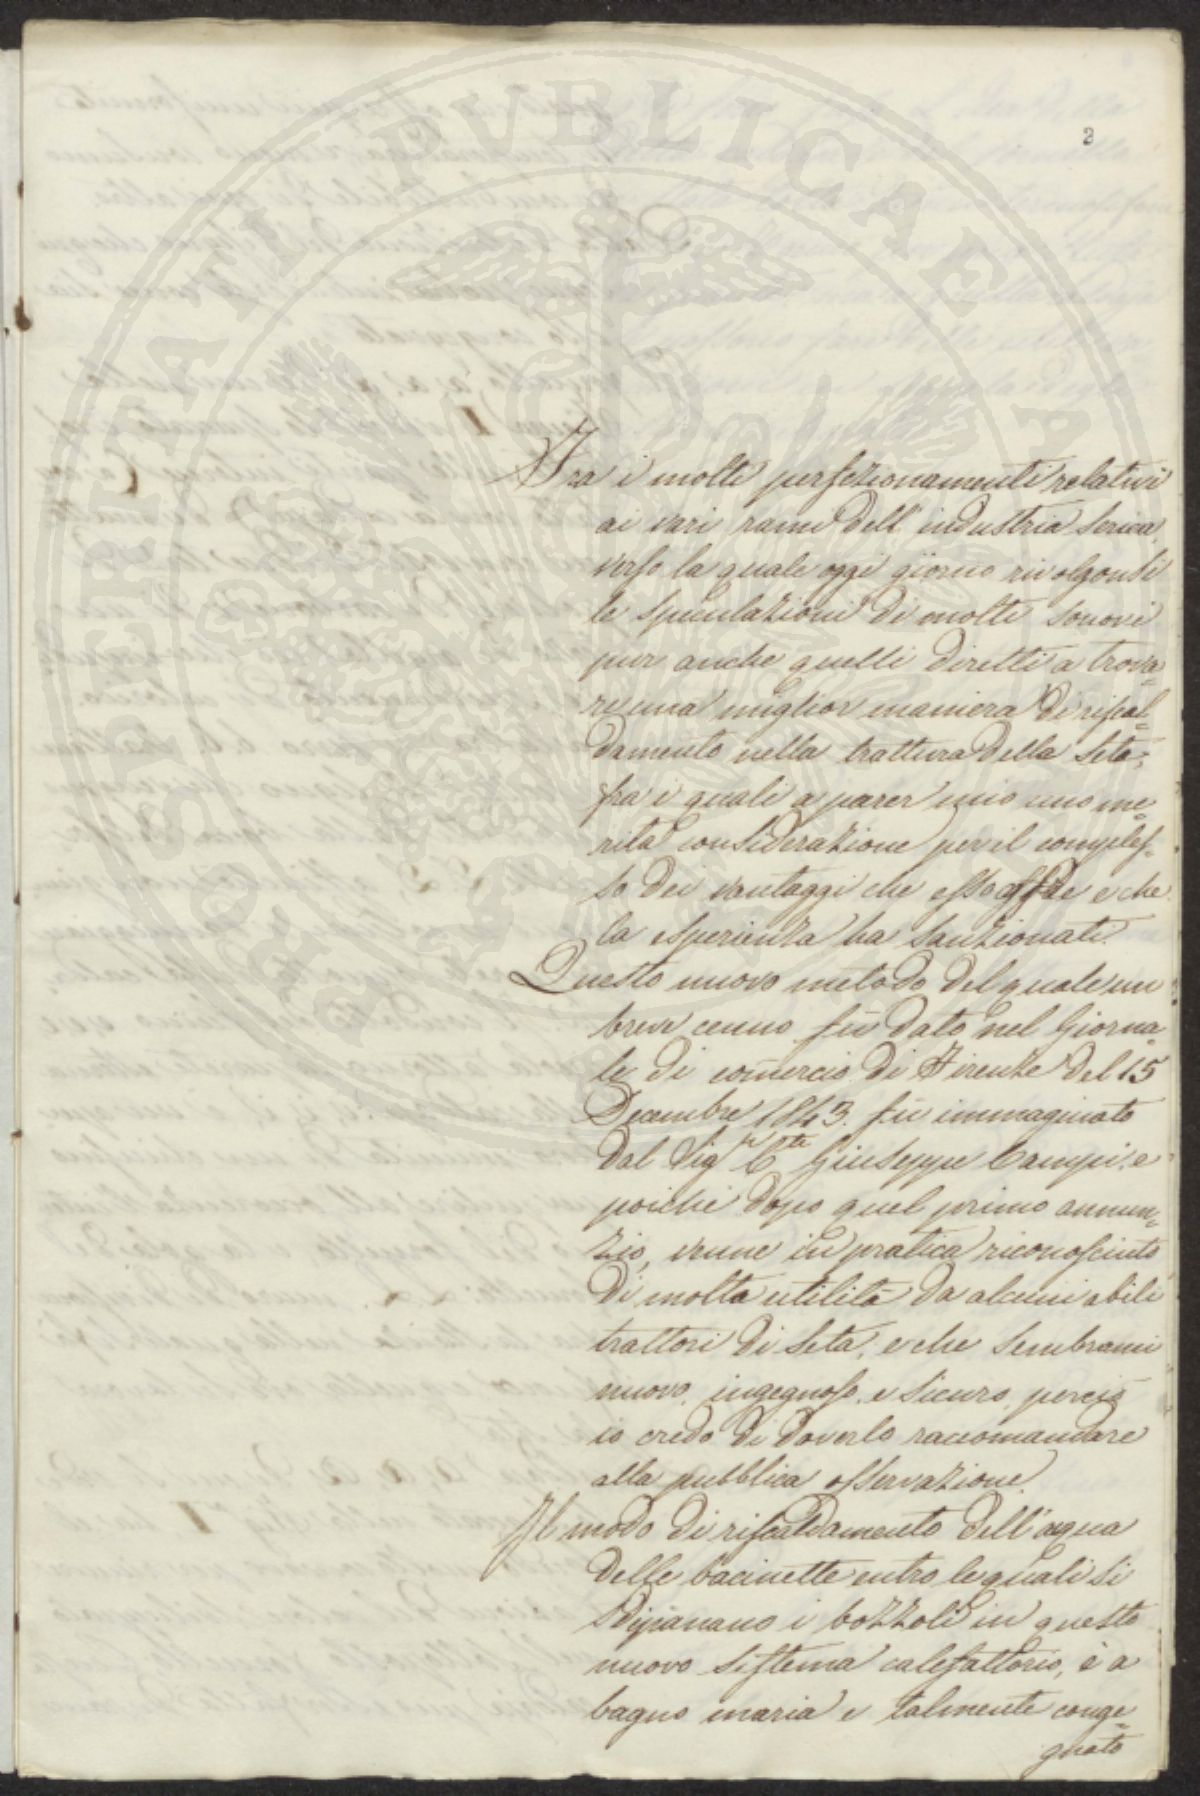 2
Fra i molti perfezionamenti relativi
ai vari rami dell' industria serica,
verso la quale oggi giorno rivolgonsi
le speculazioni di molti sonovi
pur anche quelli diretti a trova=
re una miglior maniera di riscal=
damento nella trattura della seta;
fra i quali a parer mio uno me=
rita considerazione per il comples=
so dei vantaggi che esso offre e che
la esperienza ha sanzionati.
Questo nuovo metodo del quale un
breve cenno fù dato nel Giorna=
le di comercio di Firenze del 15
Decembre 1843. fù immaginato
dal Sig.r C.te Giuseppe Campi, e
poiche dopo quel primo annun=
zio, venne in pratica riconosciuto
di molta utilità da alcuni abili
trattori di seta, e che sembrami
nuovo, ingegnoso, e sicuro, perciò
io credo di doverlo raccomandare
alla pubblica osservazione.
Il modo di riscaldamento dell' acqua
delle bacinette entro le quali si
dipanano i bozzoli in questo
nuovo sistema calefattorio, è a
bagno maria e talmente conge=
gnato
PROSPERITATI PVBLICAE